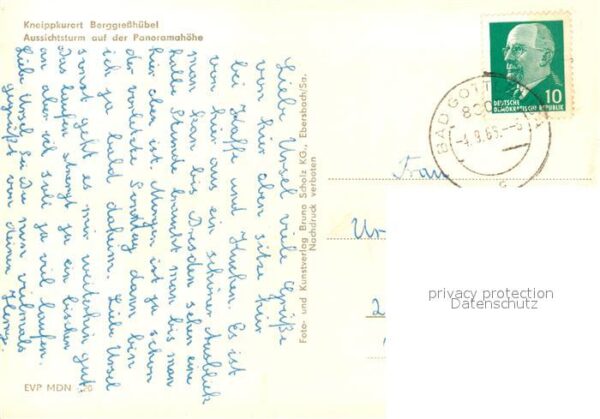 Kneippkurort Berggießhübel
Aussichtsturm auf der Panoramahöhe
Liebe Ursel viele Grüße
von hier oben sitze hier
bei Kaffe und Kuchen. Es ist
von hir aus ein schöner Ausblick
man kan bis Dresden sehen eine
halbe Stunde braucht man bis man
hir oben ist. Morgen ist ja schon
der vorletzte Sonntag dann bin
ich ja bald daheim. Liebe Ursel
sonst geht es mir weiterhin gut,
Das laufen strengt ja ein bischen
an aber ich soll ja viel laufen.
Liebe Ursel sei Du nun vielmals
gegrüßt von deinen
Foto- und Kunstverlag Bruno Scholz KG., Ebersbach/Sa.
Nachdruck verboten
EVP MDN
DEUTSCHE
DEMOKRATISCHE REPUBLIK
10
BAD GOTT
-4.9.65.--8
Frau
Ur
2
privacy protection
Datenschutz